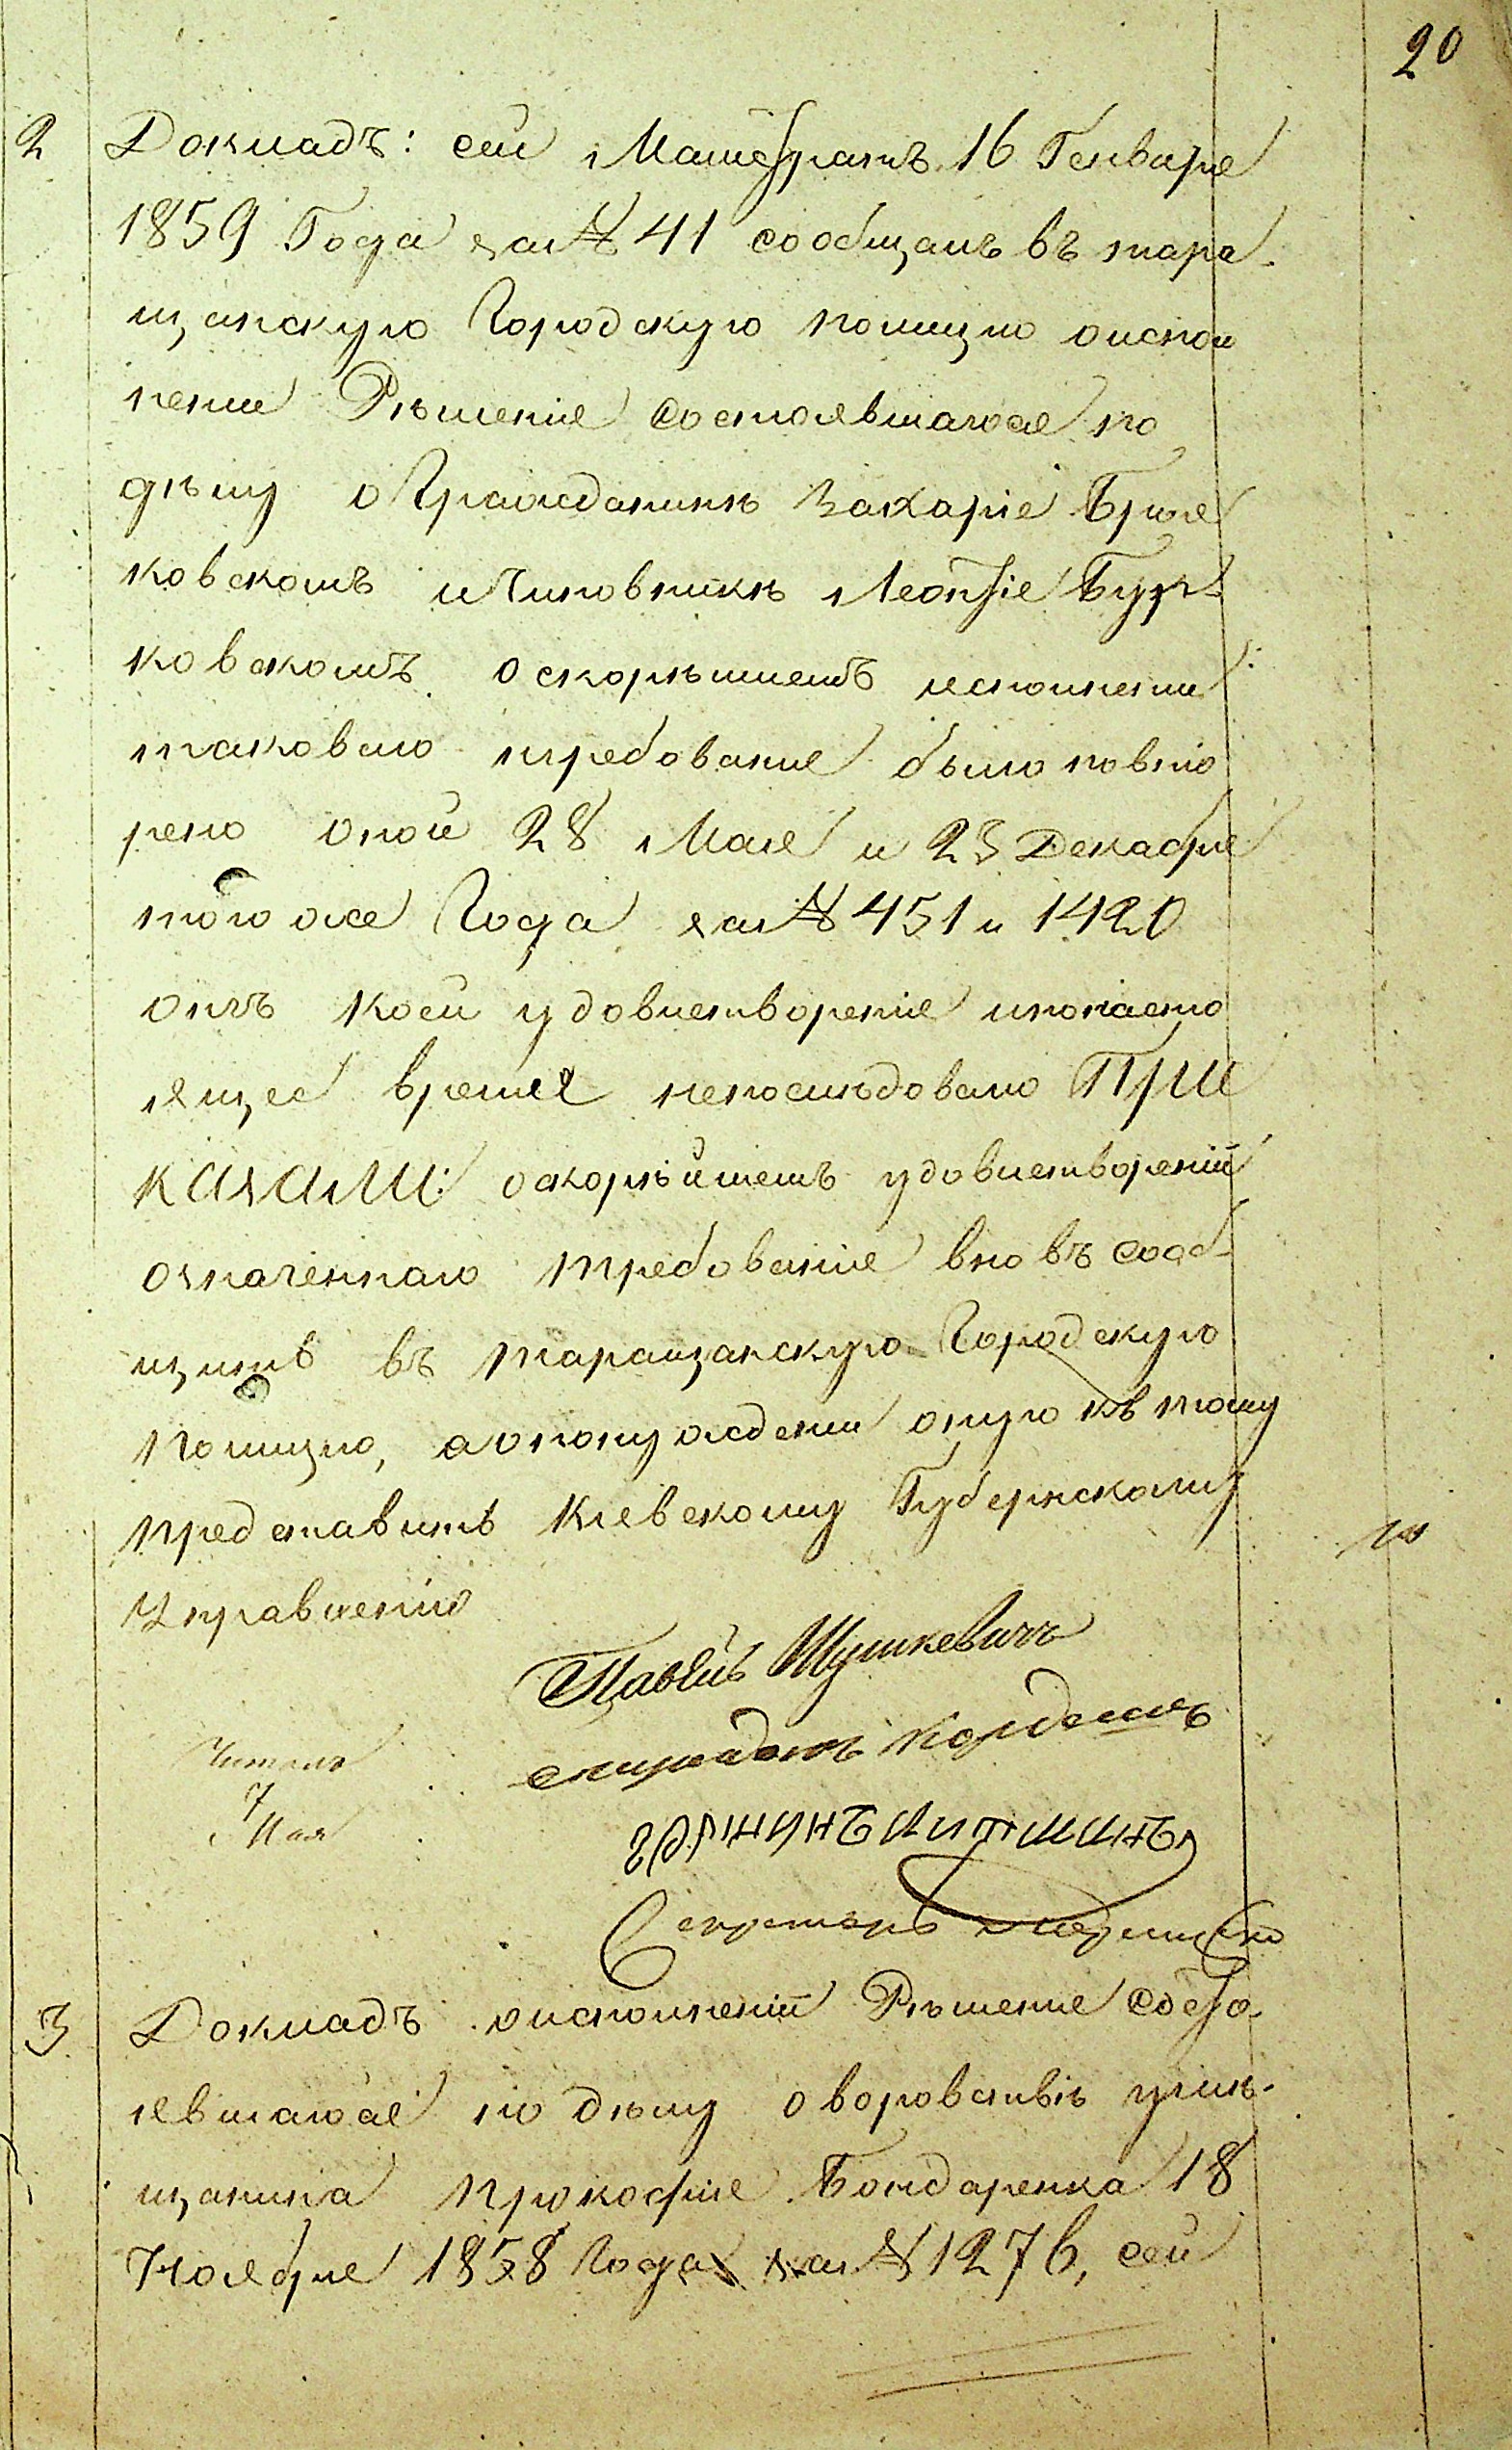 20
2 Докладъ: сей Магистратъ 16 Генваря
1859 Года за № 41 сообщалъ въ тара-
щанскую Городскую полицію оиспол
нении Рѣшенія состоявшагося по
дѣлу о Гражданинѣ Захаріе Брил
ковскомъ и Чиновникѣ Леонтіе Бур-
ковскомъ. о скорѣишемъ исполнении
таковаго требованія было повто
рено оной 28 Мая и 23 Декабря
того же Года за № 451 и 1420
отъ коей удовлетворенія ипонасто
ящее время непослѣдовало При
казали: оскорѣйшемъ удовлетвореніи
означеннаго требованія вновь сооб-
щить въ таращанскую Городскую
полицію, а опонуждении оную къ тому
представить Кіевскому Губернскому
Управленію
Павелъ Шушкевичъ
Читалъ
7
Мая
Секретарь
3 Докладъ оисполненіи Рѣшенія состо
явшагося по дѣлу о воровствѣ умѣ-
щанина Прокофія Бондаренка 18
Ноября 1858 Года за № 1276, сей